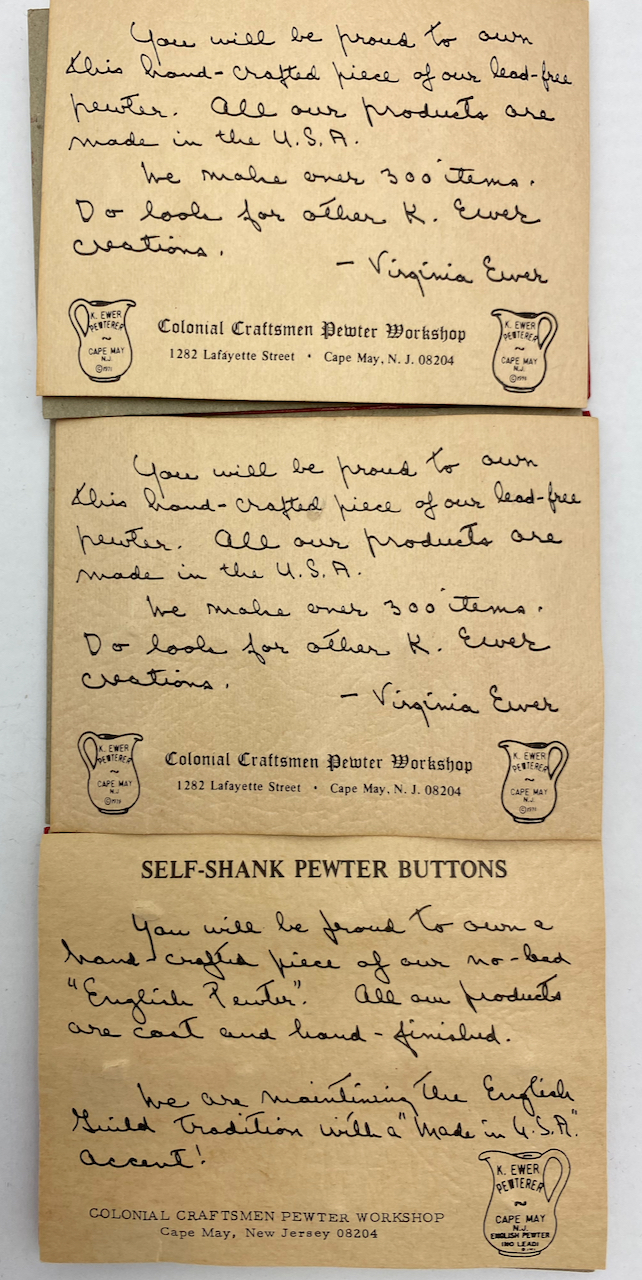 You will be proud to own
this hand-crafted piece of our lead-free
pewter. All our products are
made in the U.S.A.
We make over 300 items.
Do look for other K. Ewer
creations.
- Virginia Ewer
K. EWER
PEWTERER
~
CAPE MAY
N.J.
Colonial Craftsmen Pewter Workshop
1282 Lafayette Street • Cape May, N. J. 08204
K. EWER
PEWTERER
~
CAPE MAY
N.J.
You will be proud to own
this hand-crafted piece of our lead-free
pewter. All our products are
made in the U.S.A.
We make over 300 items.
Do look for other K. Ewer
creations.
- Virginia Ewer
K. EWER
PEWTERER
~
CAPE MAY
N.J.
Colonial Craftsmen Pewter Workshop
1282 Lafayette Street • Cape May, N. J. 08204
K. EWER
PEWTERER
~
CAPE MAY
N.J.
SELF-SHANK PEWTER BUTTONS
You will be proud to own a
hand-crafted piece of our no-lead
"English Pewter". All our products
are cast and hand-finished.
We are maintining the English
Guild tradition with a "Made in U.S.A."
accent!
COLONIAL CRAFTSMEN PEWTER WORKSHOP
Cape May, New Jersey 08204
K. EWER
PEWTERER
~
CAPE MAY
N.J.
ENGLISH PEWTER
(NO LEAD)